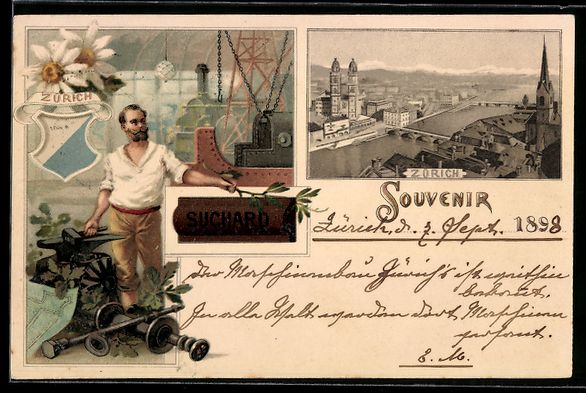 ZÜRICH
SUCHARD
ZÜRICH
SOUVENIR
Zürich, d. 7. Sept. 1898
Der Maschinenbau Zürich's ist
bekannt.
In alle Welt werden dort Maschinen
E. M.